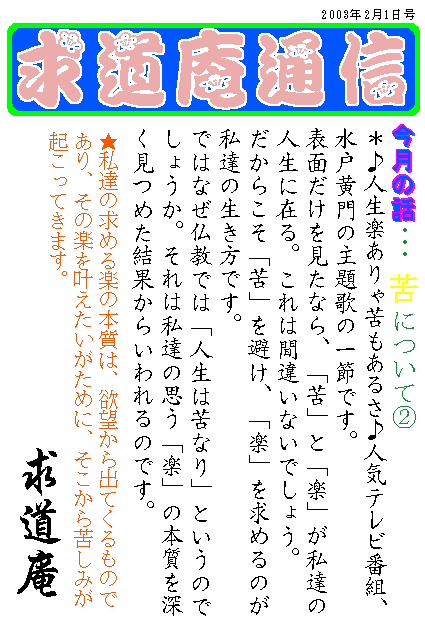 2003年2月1日号
求道庵通信
今月の話… 苦について②
＊♪人生楽ありゃ苦もあるさ♪人気テレビ番組、
水戸黄門の主題歌の一節です。
表面だけを見たなら、「苦」と「楽」が私達の
人生に在る。これは間違いないでしょう。
だからこそ「苦」を避け、「楽」を求めるのが
私達の生き方です。
ではなぜ仏教では「人生は苦なり」というので
しょうか。それは私達の思う「楽」の本質を深
く見つめた結果からいわれるのです。
★私達の求める楽の本質は、欲望から出てくるもので
あり、その楽を叶えたいがために、そこから苦しみが
起こってきます。
求道庵